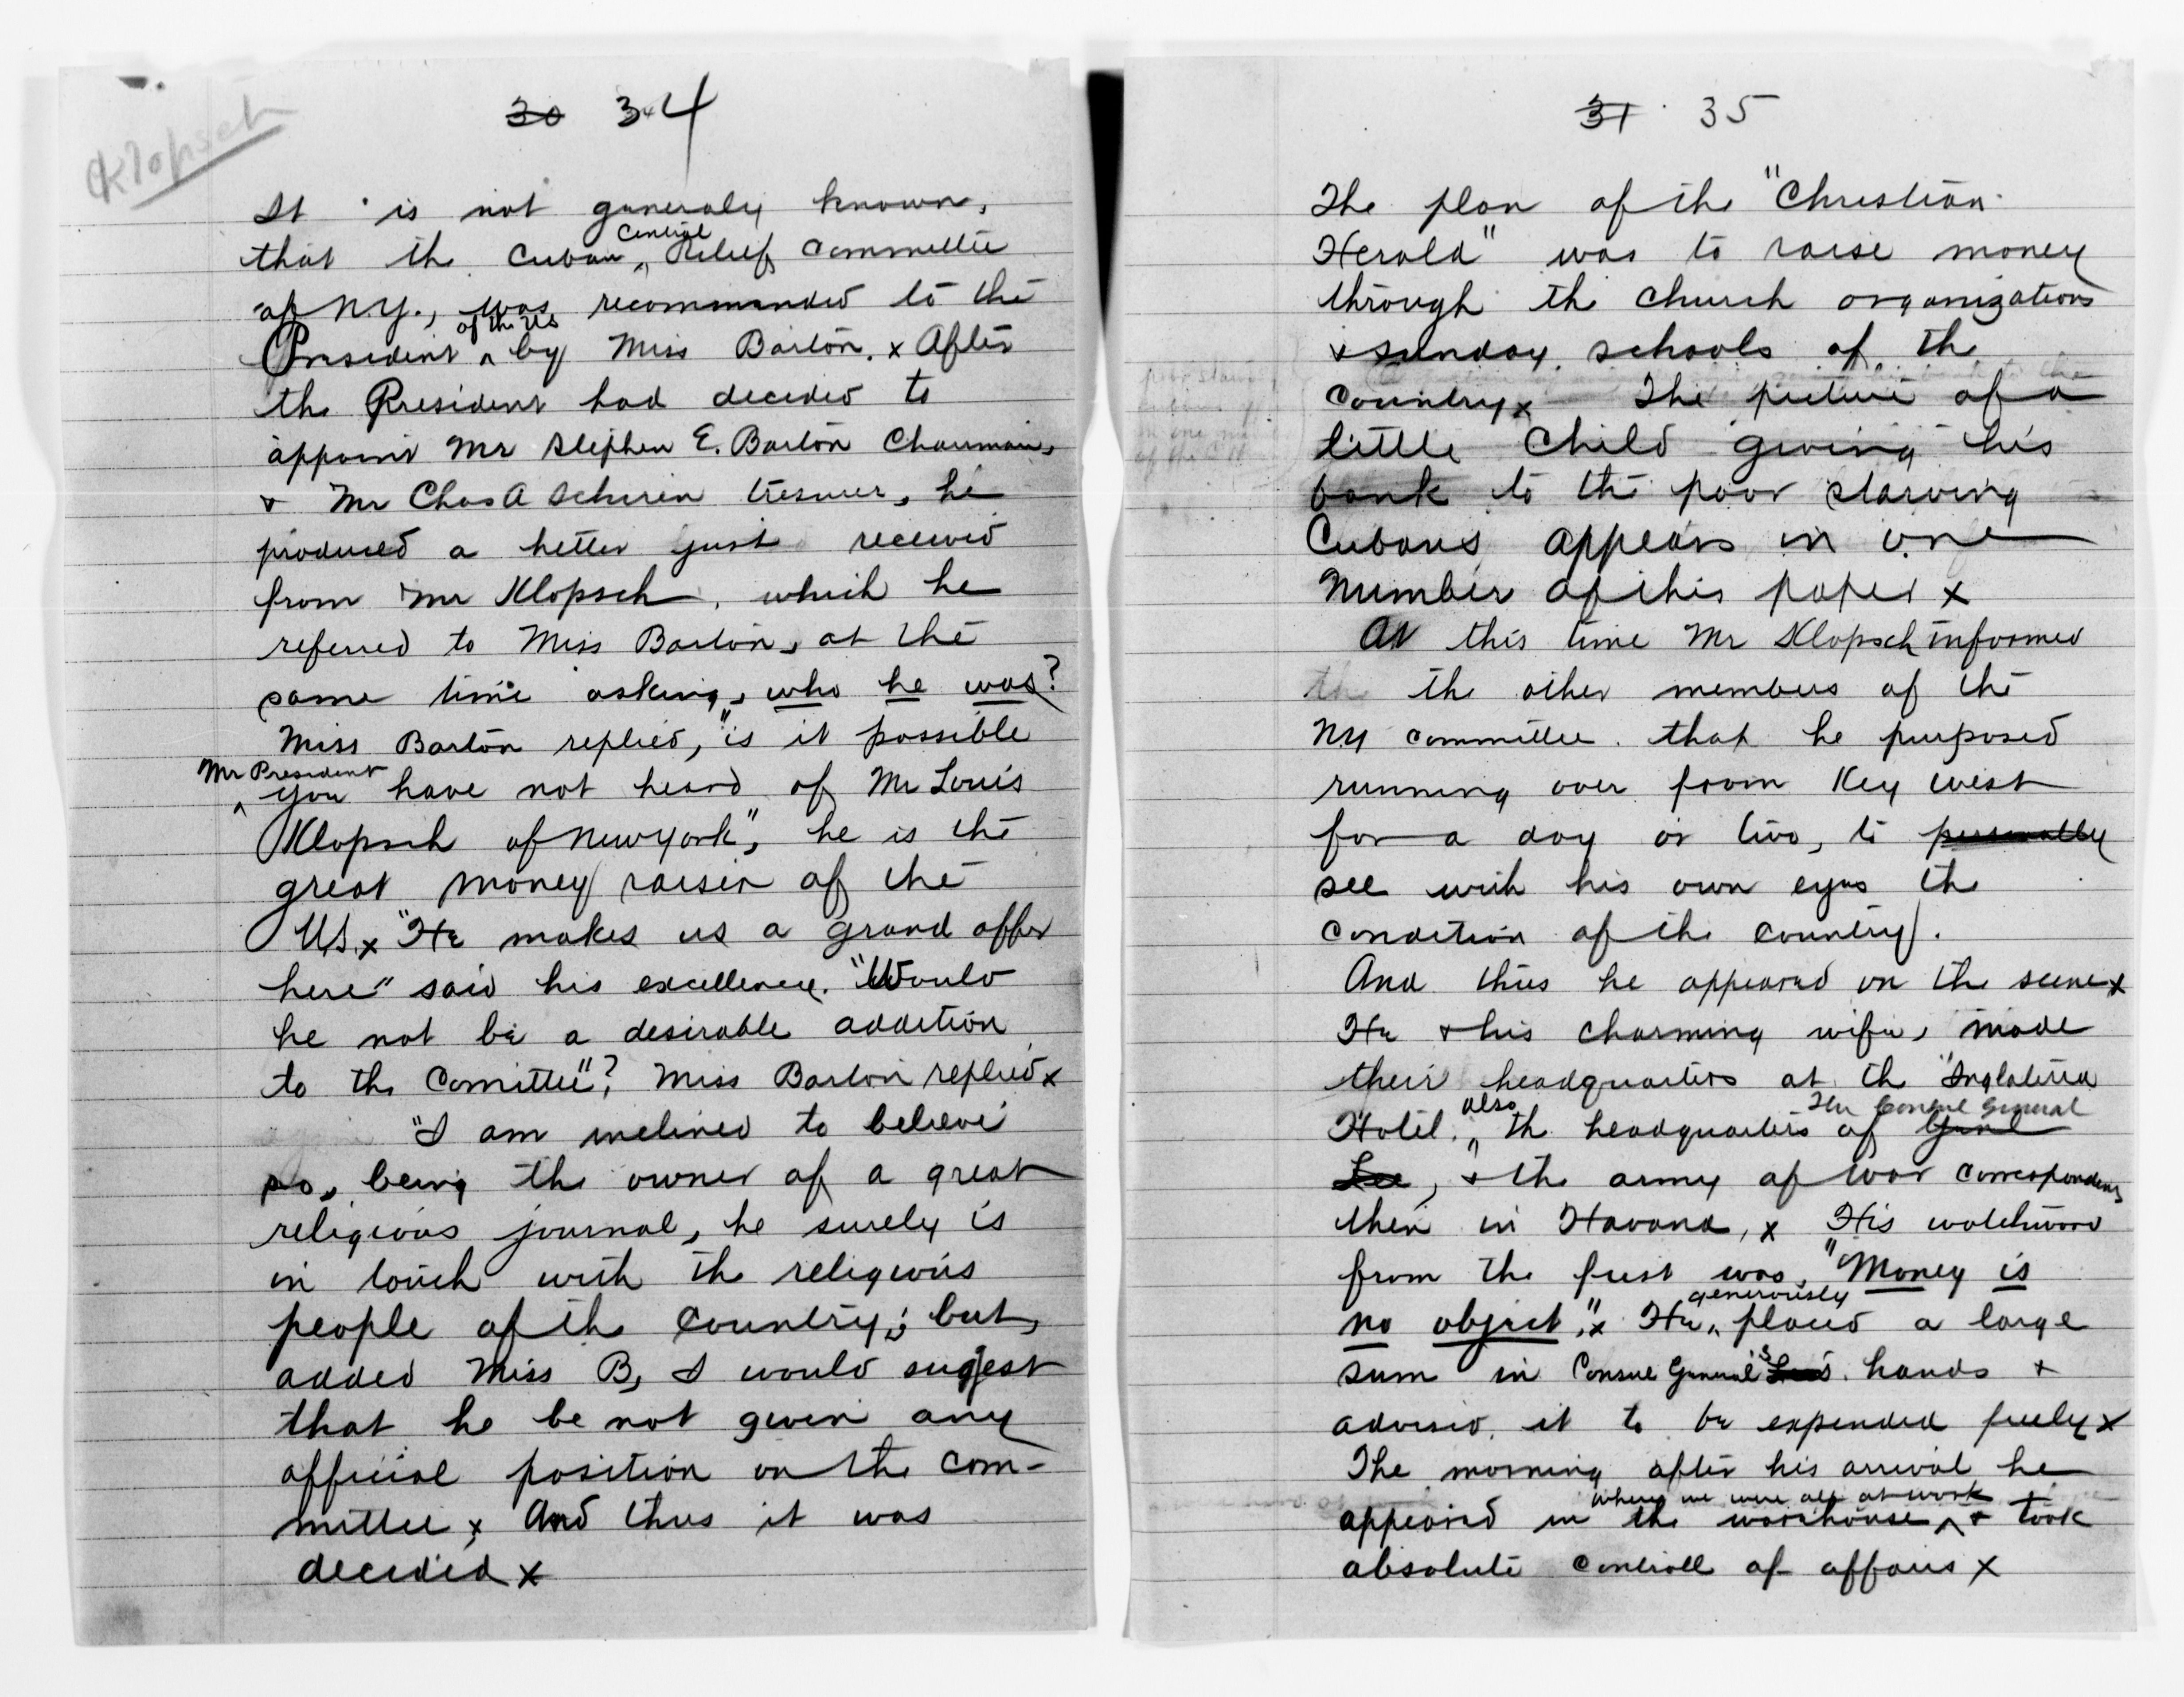 Klopsch
30 34
It is not generaly known,
that the Cuban ^ Central Relief Committee
of N.Y., was recommended to the
President ^ of the US by Miss Barton. x After
the President had decided to
appoint Mr Stephen E. Barton Chairman,
& Mr Chas A Schieren tresurer, he
produced a letter just received
from Mr Klopsch, which he
referred to Miss Barton, at the
same time asking, who he was?
Miss Barton replied, "is it possible
^ Mr President you have not heard of Mr Louis
Klopsch of New York", he is the
great money raiser of the
U.S. x "He makes us a grand offer
here" said his excellency. "Would
he not be a desirable addition
to the Comittee"? Miss Barton replied x
"I am inclined to believe
so, being the owner of a great
religious journal, he surely is
in touch with the religious
people of the country; but,
added Miss B, I would sugjest
that he be not given any
official position on the com-
mittee x And thus it was
decided x
31 35
The plan of the "Christian
Herald" was to raise money
through the church organizations
& sunday schools of the
Country x The picture of a
little child giving his
bank to the poor starving
Cubans appears in one
number of this paper x
At this time Mr Klopsch informed
the the other members of the
NY committee that he purposed
running over from Key West
for a day or two, to personally
see with his own eyes the
condition of the country.
And thus he appeared on the scene x
He & his charming wife, made
their headquarters at the "Inglaterra
Hotel. ^ also the headquarters of Genl The Consul General
Lee, & the army of war correspondents
then in Havana, x His watchword
from the first was, "Money is
no object", x He ^ generously placed a large
sum in Consul General's Lee's hands &
advised it to be expended freely x
The morning after his arrival he
appeared in the warehouse ^ where we were all at work & took
absolute controll of affairs x